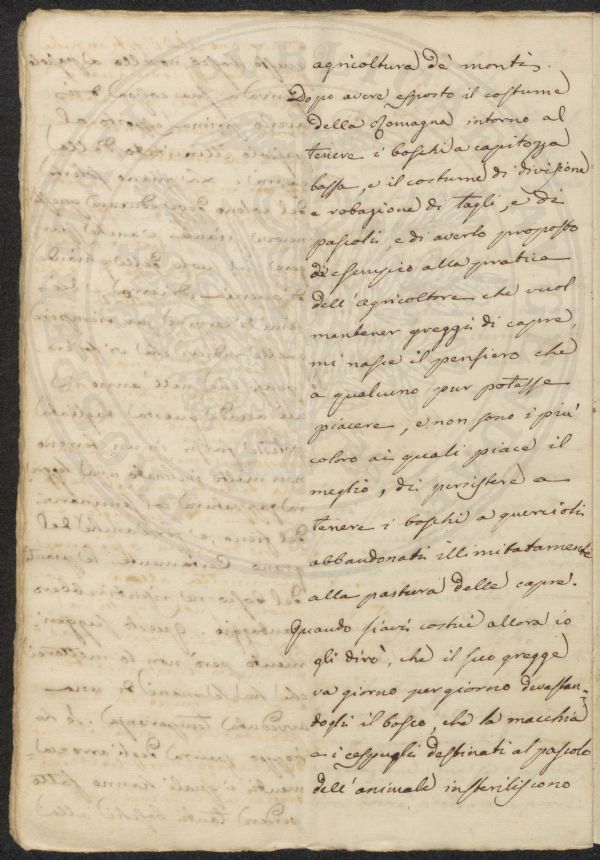 agricoltura de' monti.
Dopo avere esposto il costume
della Romagna intorno al
tenere i boschi a capitozza
bassa, e il costume di divisione
e rotazione di tagli, e di
pascoli, e di averlo proposto
di esempio alla pratica
dell'agricoltore che vuol
mantener greggi di capre,
mi nasce il pensiero che
a qualcuno pur potesse
piacere, e non sono i più
coloro ai quali piace il
meglio, di persistere a
tenere i boschi a quercioli
abbandonati illimitatamente
alla pastura delle capre.
Quando siavi costui allora io
gli dirò, che il suo gregge
va giorno per giorno devastan-
dogli il bosco, che la macchia
e i cespugli destinati al pascolo
dell'animale insteriliscono